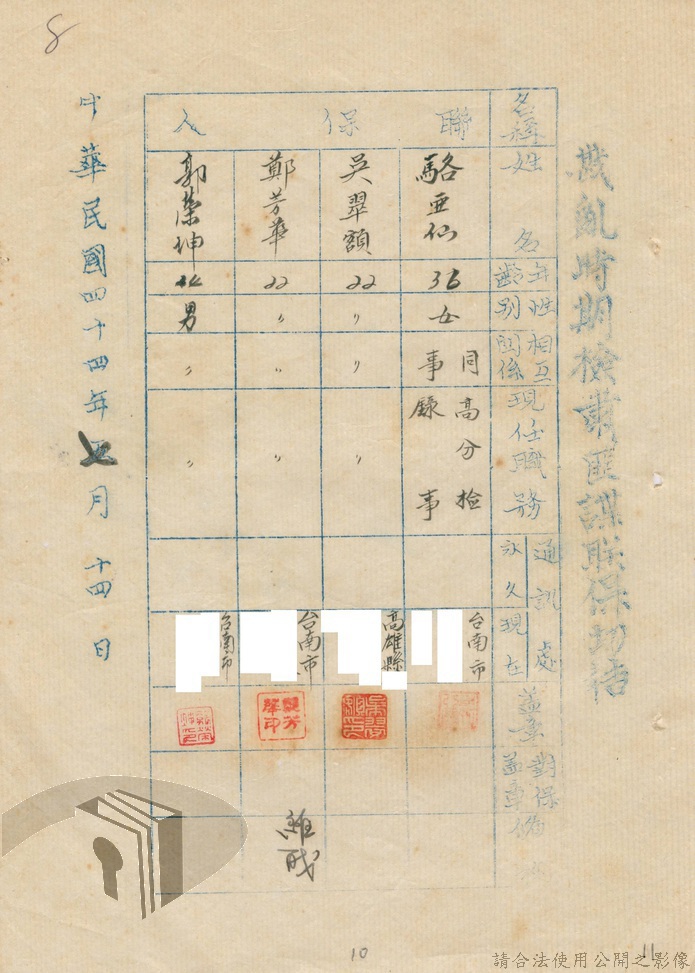 8
戡亂時期檢肅匪諜联保切结
名稱 聯保人
姓名 駱亜仙 吳翠額 鄭芳華 郭榮坤
年齡 36 22 22
性别 女 〃 〃 男
相互関係 同事 〃 〃 〃
現任職務 高分检錄事 〃 〃 〃
通訊處
永久
現在 台南市 高雄縣 台南市 台南市
蓋章
對保蓋章
備
中華民國四十四年五月十四日
10
11
請合法使用公開之影像